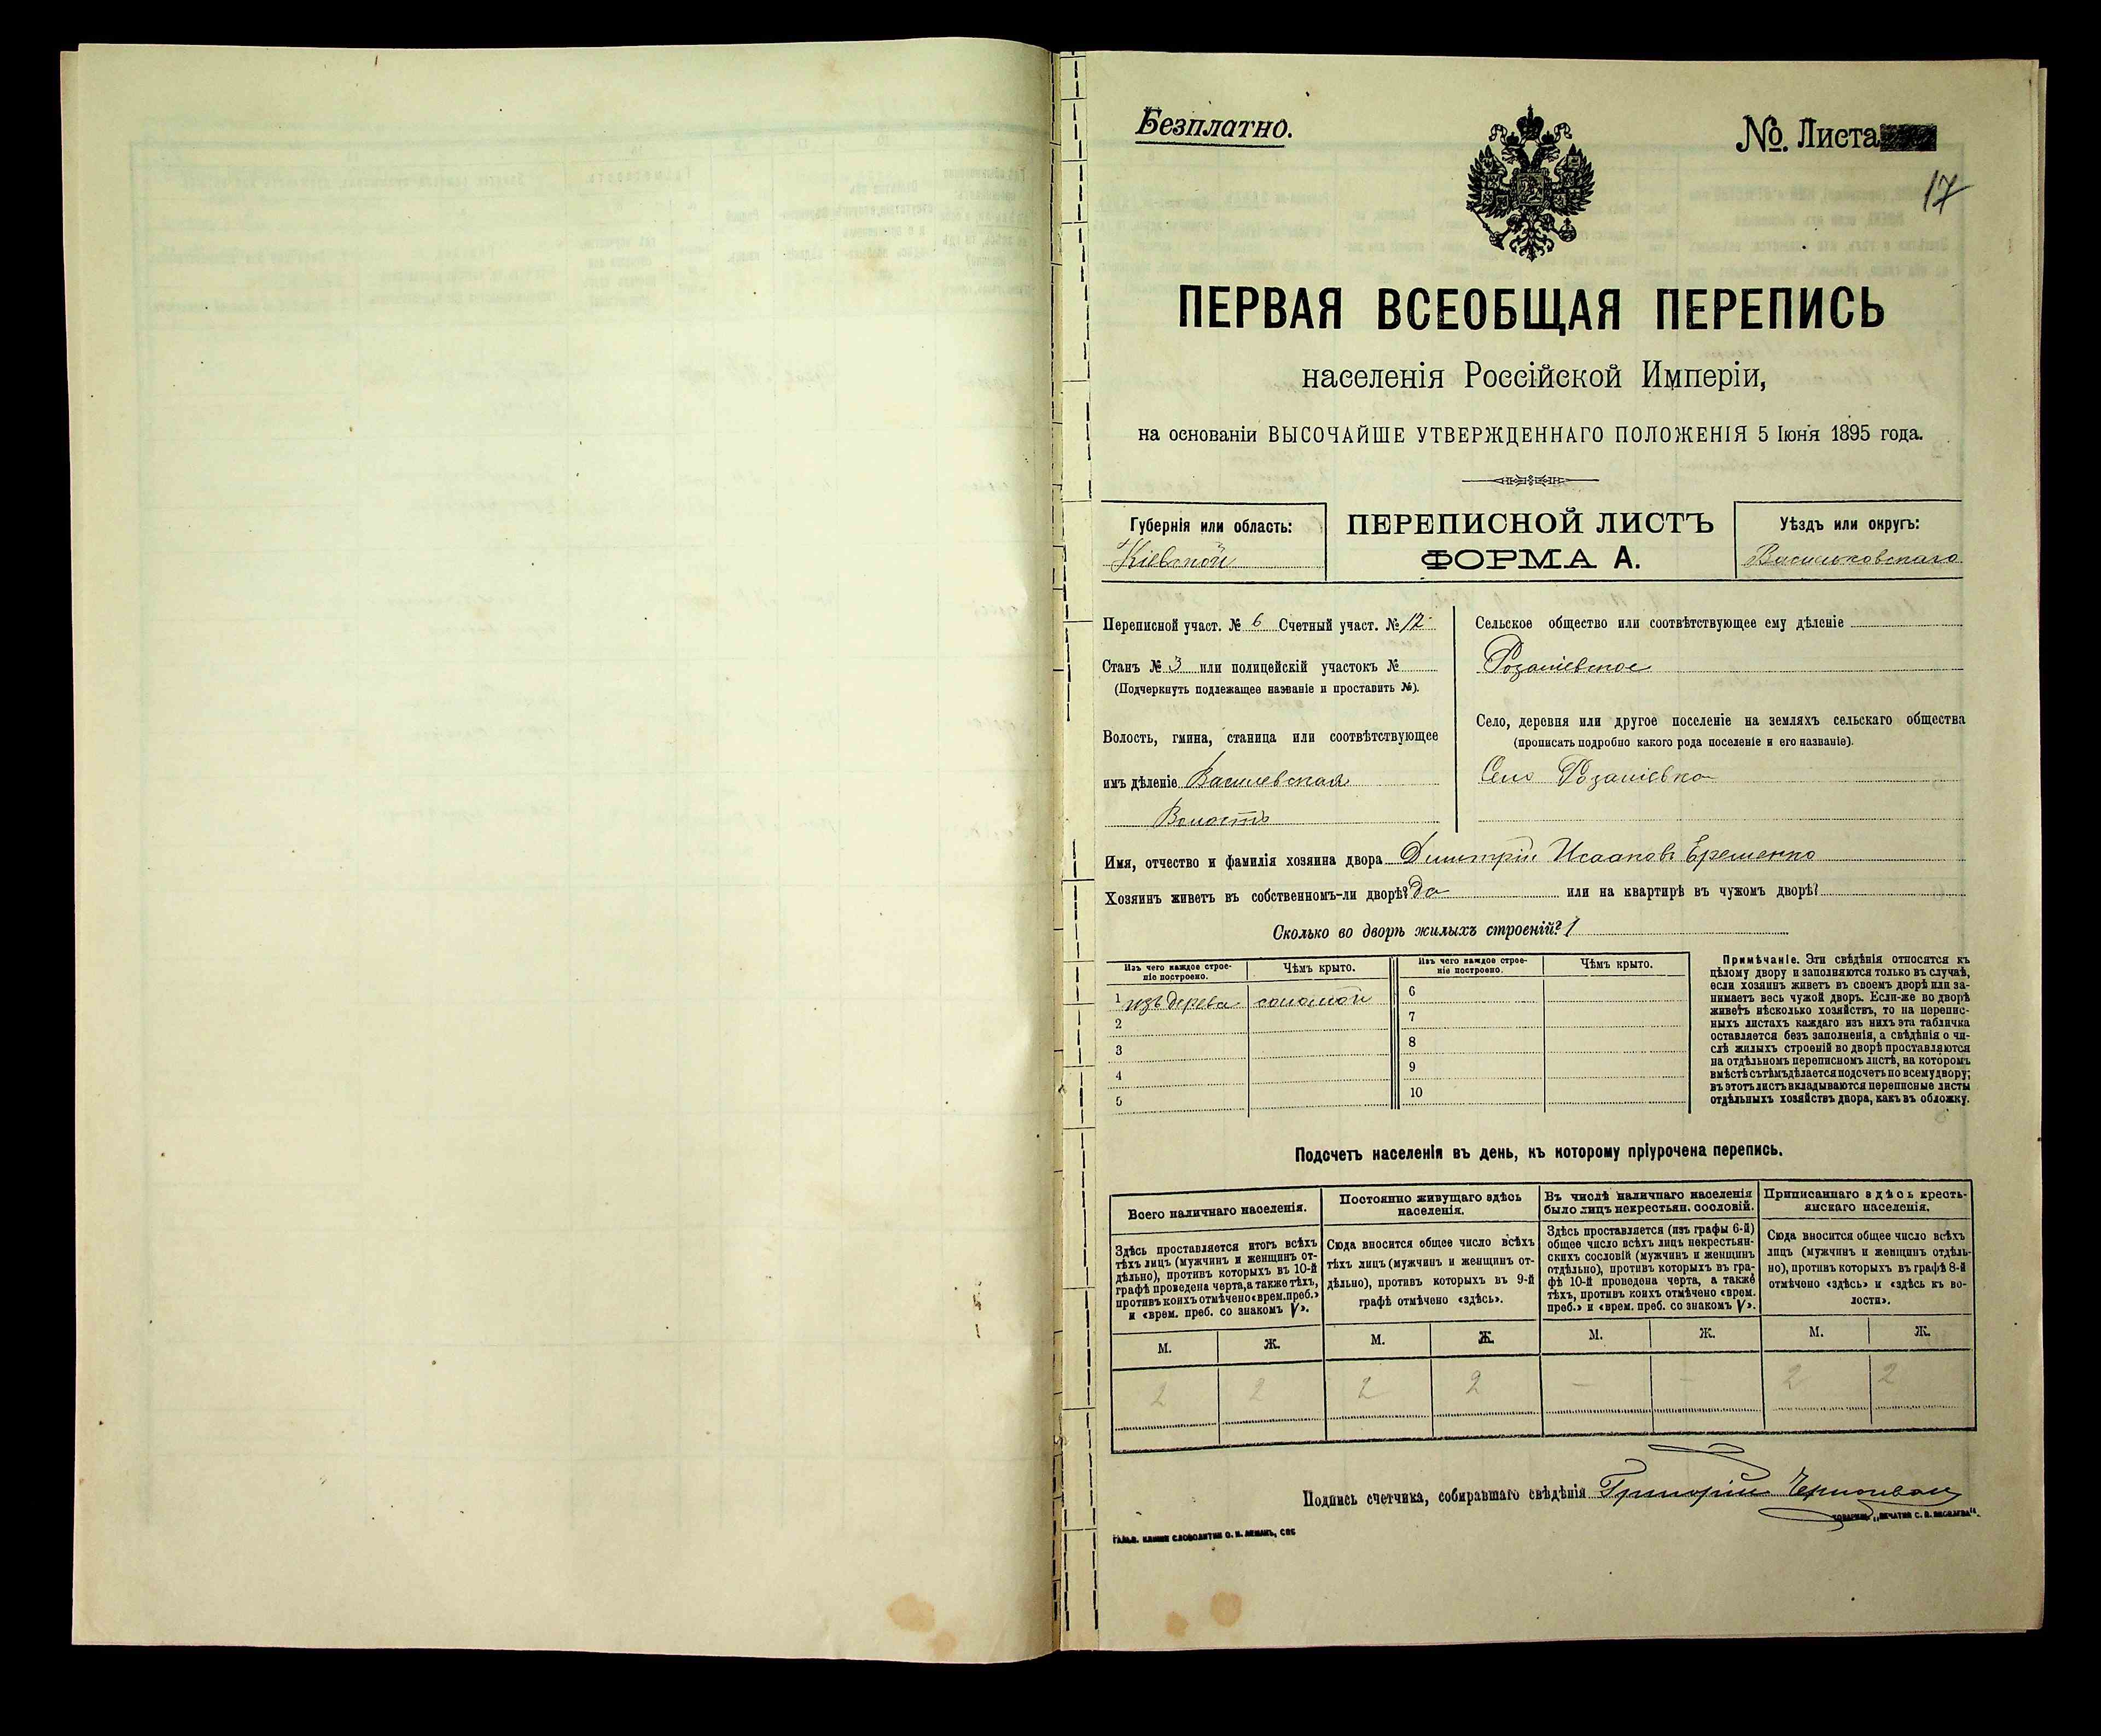 Безплатно.
№. Листа
17
ПЕРВАЯ ВСЕОБЩАЯ ПЕРЕПИСЬ
населенія Россійской Имперіи,
на основаніи ВЫСОЧАЙШЕ УТВЕРЖДЕННАГО ПОЛОЖЕНІЯ 5 Іюня 1895 года.
Губернія или область:
Кіевской
ПЕРЕПИСНОЙ ЛИСТЪ
ФОРМА А.
Уѣздъ или округъ:
Васильковскаго
Переписной участ. № 6 Счетный участ. № 12
Станъ № 3 или полицейскій участокъ №
(Подчеркнуть подлежащее названіе и проставить №).
Волость, гмина, станица или соотвѣтствующее
имъ дѣленіе Василевская
Волость
Сельское общество или соотвѣтствующее ему дѣленіе
Розаліевское
Село, деревня или другое поселеніе на земляхъ сельскаго общества
(прописать подробно какого рода поселеніе и его названіе).
Село Розаліевка
Имя, отчество и фамилія хозяина двора Димитрій Исааковъ Еременко
Хозяинъ живетъ въ собственномъ-ли дворѣ? да или на квартирѣ въ чужомъ дворѣ?
Сколько во дворѣ жилыхъ строеній? 1
Изъ чего каждое строе-
ніе построено.
Чѣмъ крыто.
1 изъ дерева соломой
2
3
4
5
Изъ чего каждое строе-
ніе построено.
Чѣмъ крыто.
6
7
8
9
10
Примѣчаніе. Эти свѣдѣнія относятся къ
цѣлому двору и заполняются только въ случаѣ,
если хозяинъ живетъ въ своемъ дворѣ или за-
нимаетъ весь чужой дворъ. Если-же во дворѣ
живетъ нѣсколько хозяйствъ, то на перепис-
ныхъ листахъ каждаго изъ нихъ эта табличка
оставляется безъ заполненія, а свѣдѣнія о чи-
слѣ жилыхъ строеній во дворѣ проставляются
на отдѣльномъ переписномъ листѣ, на которомъ
вмѣстѣ съ тѣмъ дѣлается подсчетъ по всему двору;
въ этотъ листъ вкладываются переписные листы
отдѣльныхъ хозяйствъ двора, какъ въ обложку.
Подсчетъ населенія въ день, къ которому пріурочена перепись.
Всего наличнаго населенія.
Здѣсь проставляется итогъ всѣхъ
тѣхъ лицъ (мужчинъ и женщинъ от-
дѣльно), противъ которыхъ въ 10-й
графѣ проведена черта, а также тѣхъ,
противъ коихъ отмѣчено «врем. преб.»
и «врем. преб. со знакомъ V».
М. Ж.
2 2
Постоянно живущаго здѣсь
населенія.
Сюда вносится общее число всѣхъ
тѣхъ лицъ (мужчинъ и женщинъ от-
дѣльно), противъ которыхъ въ 9-й
графѣ отмѣчено «здѣсь».
М. Ж.
2 2
Въ числѣ наличнаго населенія
было лицъ некрестьян. сословій.
Здѣсь проставляется (изъ графы 6-й)
общее число всѣхъ лицъ некрестьян-
скихъ сословій (мужчинъ и женщинъ
отдѣльно), противъ которыхъ въ гра-
фѣ 10-й проведена черта, а также
тѣхъ, противъ коихъ отмѣчено «врем.
преб.» и «врем. преб. со знакомъ V».
М. Ж.
— —
Приписаннаго здѣсь кресть-
янскаго населенія.
Сюда вносится общее число всѣхъ
лицъ (мужчинъ и женщинъ отдѣль-
но), противъ которыхъ въ графѣ 8-й
отмѣчено «здѣсь» и «здѣсь къ во-
лости».
М. Ж.
2 2
Подпись счетчика, собиравшаго свѣдѣнія Григорій